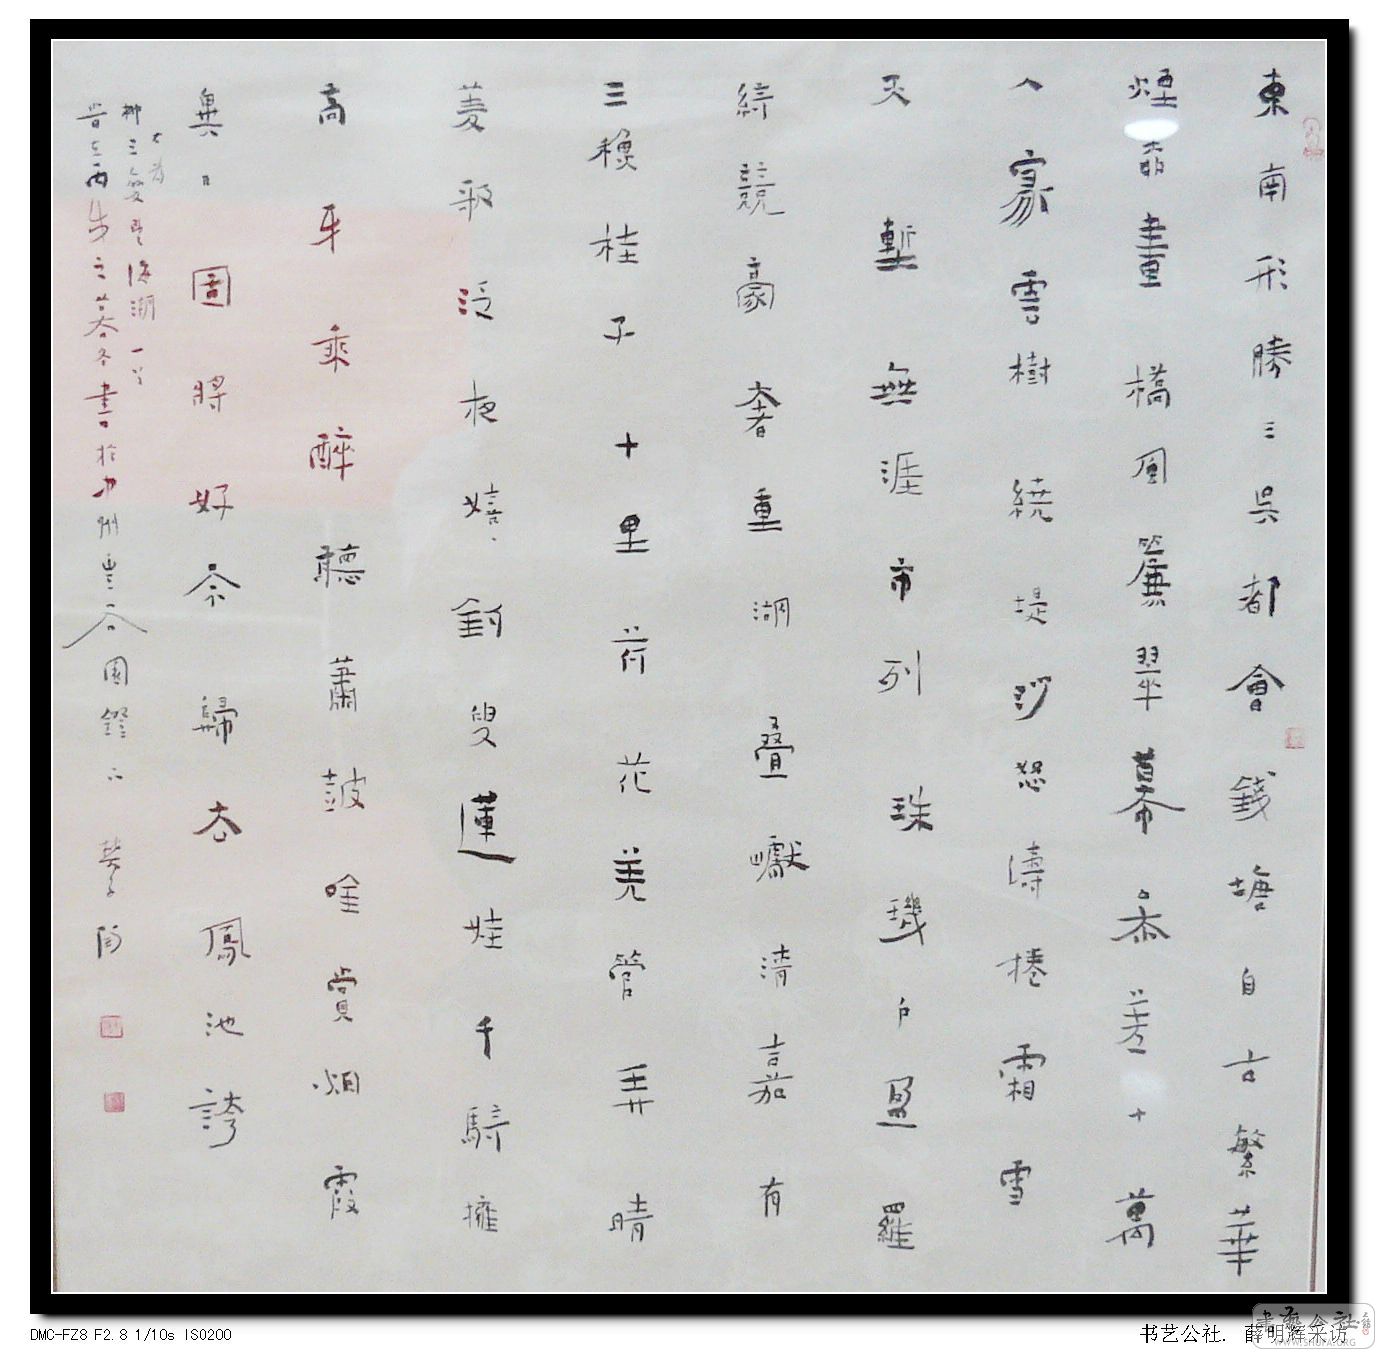 東南形勝三吳都會錢塘自古繁華
煙柳畫橋風簾翠幕參差十萬
人家雲樹繞堤沙怒濤捲霜雪
天塹無涯市列珠璣戶盈羅
綺競豪奢重湖疊巘清嘉有
三穐桂子十里荷花羌管弄晴
菱歌泛夜嬉嬉釣叟蓮娃千騎擁
高牙乘醉聽蕭鼓吟賞烟霞
異日圖將好京歸去鳳池誇
柳三變望海潮一首
DMC-FZ8 F2.8 1/10s ISO200
书艺公社. 薛明辉采访